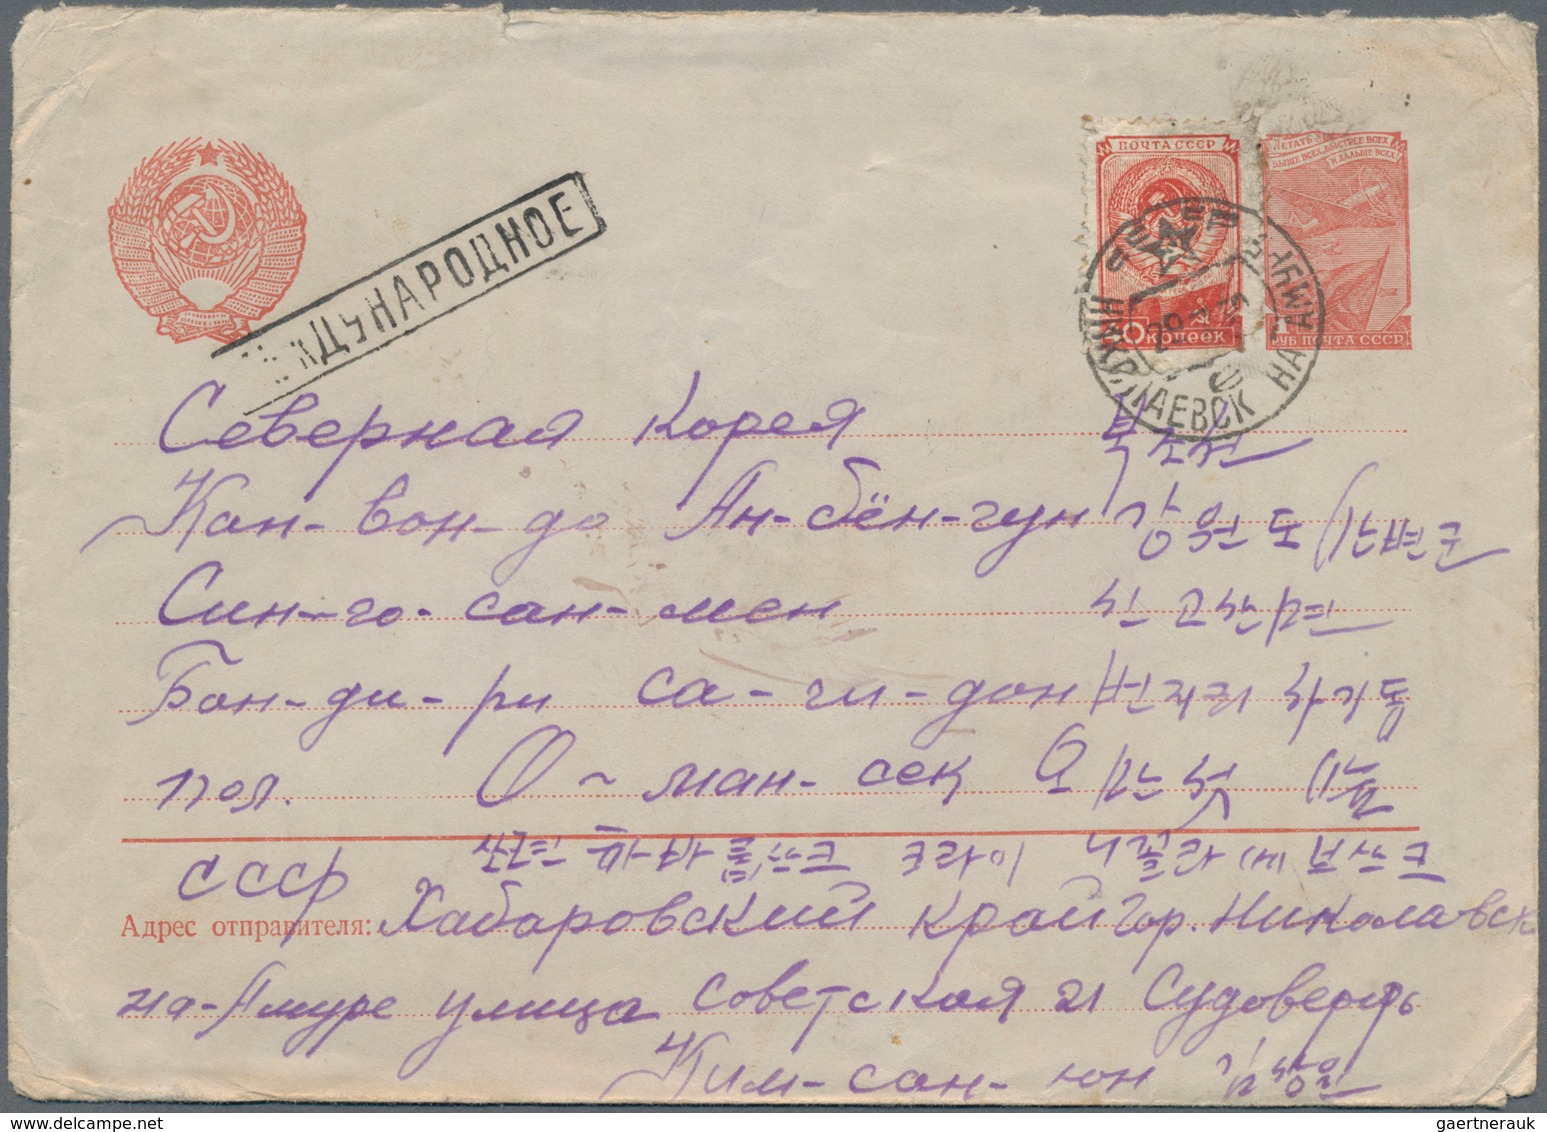 МЕЖДУНАРОДНОЕ
ПОЧТА СССР
40 копеек
ЛЕТАТЬ
ВЫШЕ ВСЕХ, БЫСТРЕЕ ВСЕХ
И ДАЛЬШЕ ВСЕХ!
РУБ ПОЧТА СССР
НИКОЛАЕВСК НА АМУРЕ
29
Северная Корея 북조선
Кан-вон-до Ан-бён-гун 강원도 안변군
Син-го-сан-мен 신고산면
Бон-ди-ри са-ги-дон 번지리 사기동
пол. О-ман-сек 오만석
СССР 쏘련 하바롭쓰크 크라이 니꼴라예브쓰크
Адрес отправителя: Хабаровский край гор. Николаевск
на-Амуре улица Советская 21 Судоверфь
Ким-сан-юн 김상윤
gaertnerauk